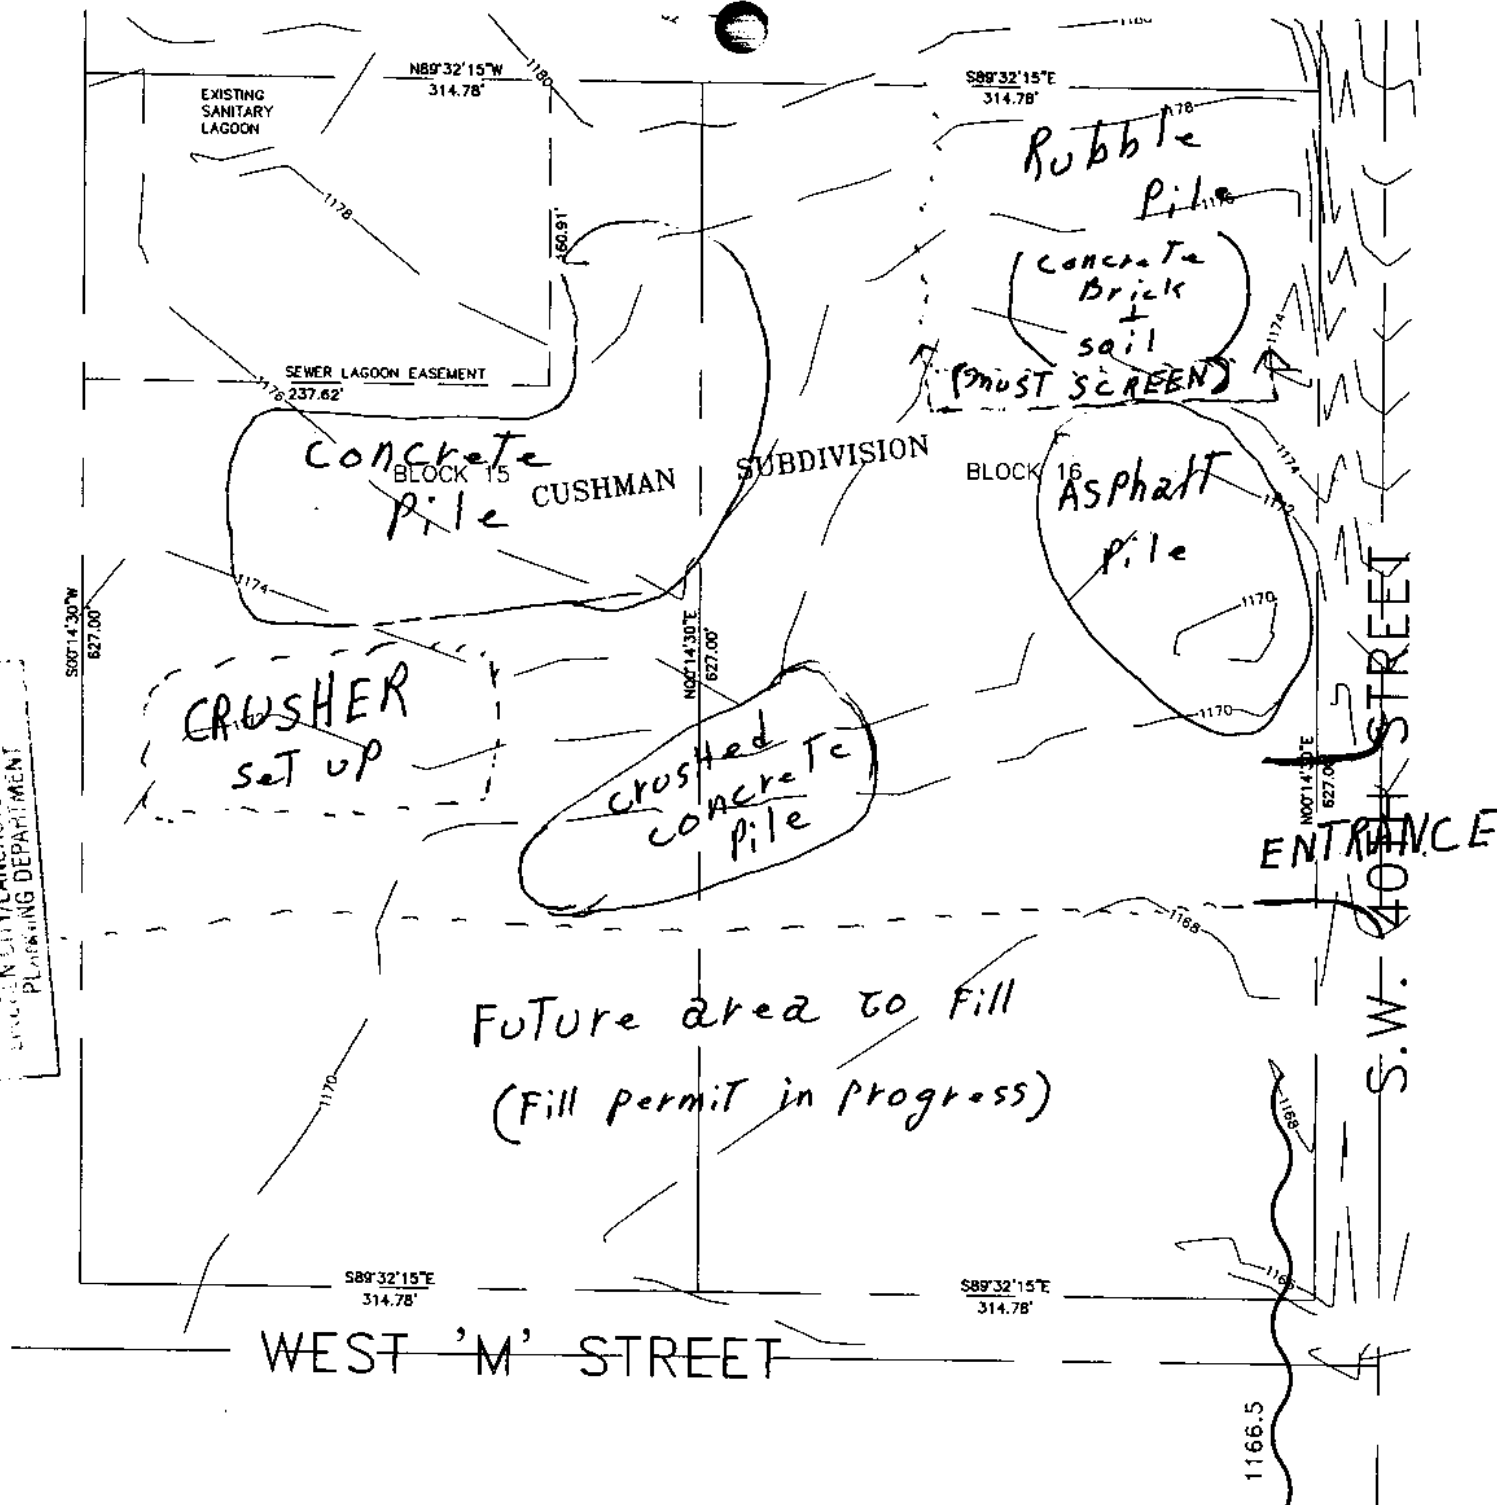 1180
N89°32'15"W
314.78'
1180
S89°32'15"E
314.78'
EXISTING
SANITARY
LAGOON
1178
Rubble
Pile
1176
1178
160.91'
(concrete
Brick
+
soil)
1174
(must SCREEN)
SEWER LAGOON EASEMENT
237.62'
1176
concrete
BLOCK 15
Pile
CUSHMAN SUBDIVISION
BLOCK 16
1174
Asphalt
1172
Pile
1174
1170
S00°14'30"W
627.00'
N00°14'30"E
627.00'
CRUSHER
1172
set up
1170
crushed
concrete
Pile
N00°14'30"E
627.00'
ENTRANCE
S.W. 40TH STREET
PLANNING DEPARTMENT
1168
Future area to Fill
(Fill permit in progress)
1170
1168
1166
S89°32'15"E
314.78'
S89°32'15"E
314.78'
WEST 'M' STREET
1166.5